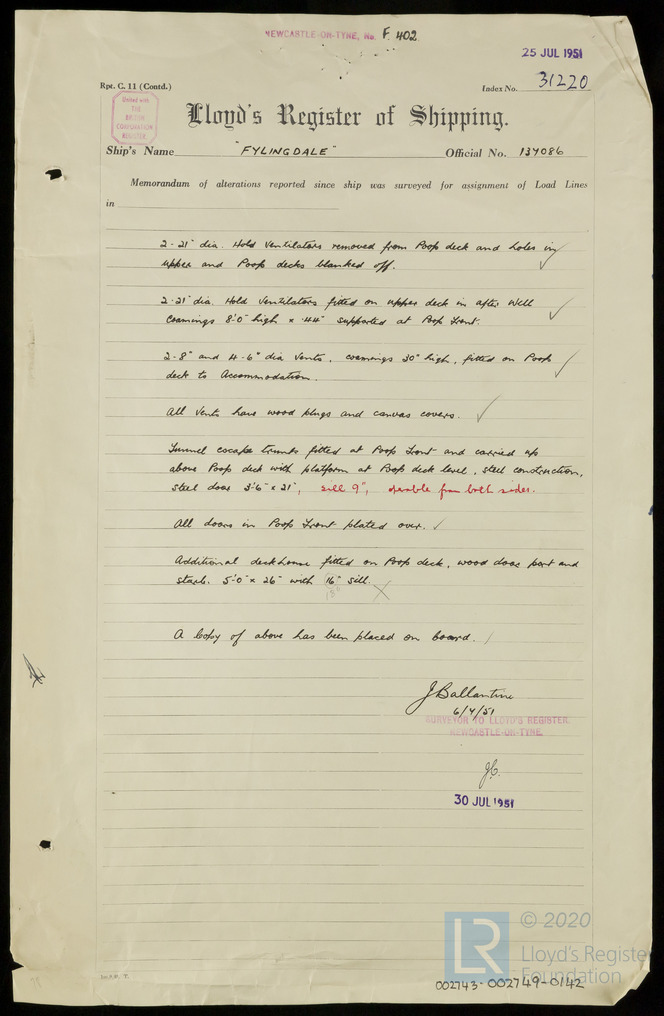 NEWCASTLE-ON-TYNE, No. F 402
25 JUL 1951
Rpt. C. 11 (Contd.)
Index No. 31220
United with
THE
BRITISH
CORPORATION
REGISTER
Lloyd's Register of Shipping.
Ship's Name "FYLINGDALE" Official No. 134086
Memorandum of alterations reported since ship was surveyed for assignment of Load Lines
in
2-21" dia. Hold Ventilators removed from Poop deck and holes in
upper and Poop decks blanked off.
2-21" dia. Hold Ventilators fitted on upper deck in after Well
Coamings 8'0" high x .44" supported at Poop Front.
2-8" and 4-6" dia vents, coamings 30" high, fitted on Poop
deck to Accommodation.
All vents have wood plugs and canvas covers.
Tunnel escape trunks fitted at Poop Front and carried up
above Poop deck with platform at Poop deck level, steel construction,
steel door 3'6" x 21", sill 9", operable from both sides.
All doors in Poop Front plated over.
Additional deckhouse fitted on Poop deck, wood door port and
starb. 5'0" x 26" with 16" sill.
15"
A copy of above has been placed on board.
J Ballantine
6/7/51
SURVEYOR TO LLOYD'S REGISTER
NEWCASTLE-ON-TYNE.
30 JUL 1951
LR
© 2020
Lloyd's Register
Foundation
002743-002749-0142